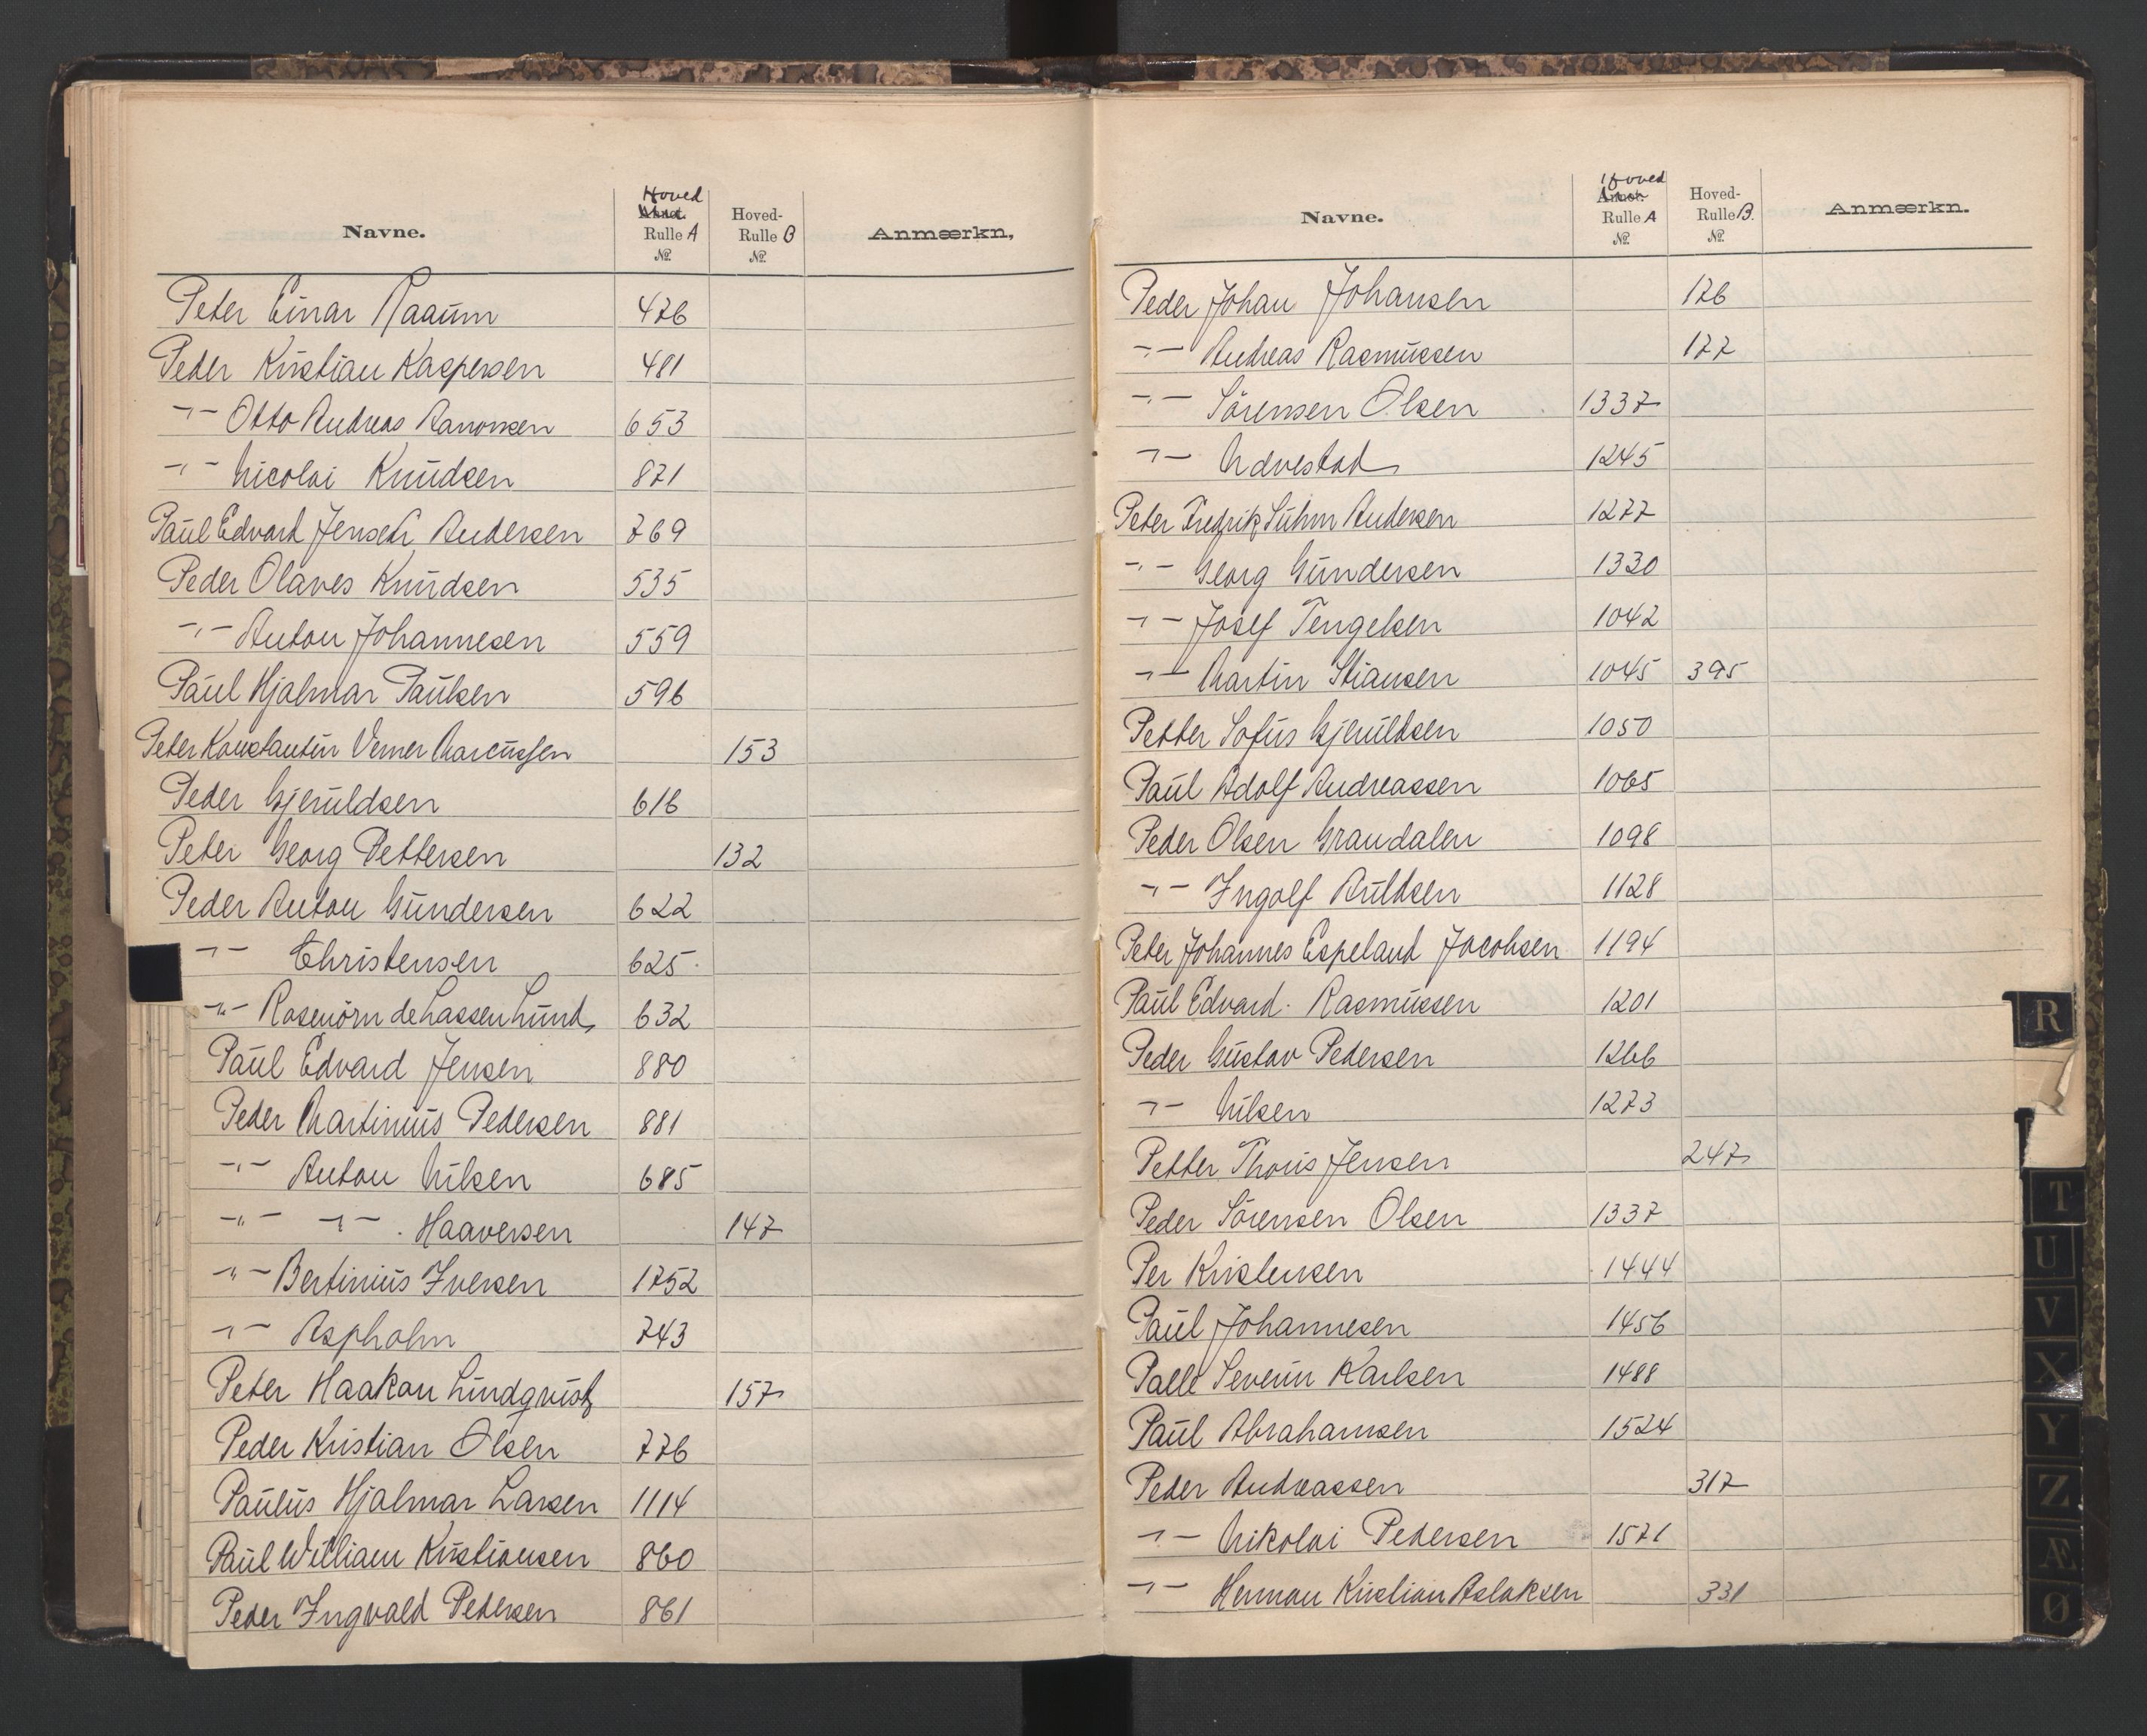 Navne. Hoved Annot. Rulle A № Hoved-Rulle B № Anmærkn,
Peter Einar Raaum 476
Peder Kristian Kaspersen 481
-"- Otto Andreas Aanonsen 653
-"- Nicolai Knudsen 871
Paul Edvard Jensen Andersen 769
Peder Olaves Knudsen 535
-"- Anton Johannesen 559
Paul Hjalmar Paulsen 596
Peter Konstantin Verner Marcussen 153
Peder Gjeruldsen 616
Peter Georg Pettersen 132
Peder Anton Gundersen 622
-"- Christensen 625
-"- Rosenörn de Lassen Lund 632
Paul Edvard Jensen 880
Peder Martinius Pedersen 881
-"- Anton Nilsen 685
-"- -"- Haaversen 147
-"- Bertinius Iversen 1752
-"- Aspholm 743
Peter Haakon Lindqvist 157
Peder Kristian Olsen 776
Paulus Hjalmar Larsen 1114
Paul William Kristiansen 860
Peder Ingvald Pedersen 861
Navne. Hoved Annot. Rulle A № Hoved-Rulle B. № Anmærkn.
Peder Johan Johansen 176
-"- Andreas Rasmussen 177
-"- Sörensen Olsen 1337
-"- Udvestad 1245
Peter Fredrik Suhm Andersen 1277
-"- Georg Gundersen 1330
-"- Josef Tengelsen 1042
-"- Martin Stiansen 1045 395
Petter Sofus Gjeruldsen 1050
Paul Adolf Andreassen 1065
Peder Olsen Grandalen 1098
-"- Ingolf Auldsen 1128
Peter Johannes Espeland Jacobsen 1194
Paul Edvard. Rasmussen 1201
Peder Gustav Pedersen 1266
-"- Nilsen 1273
Petter Thoris Jensen 247
Peder Sörensen Olsen 1337
Per Kristensen 1444
Paul Johannesen 1456
Palle Severin Karlsen 1488
Paul Abrahamsen 1524
Peder Andreassen 317
-"- Nikolai Pedersen 1571
-"- Herman Kristian Aslaksen 331
R
T
U
V
X
Y
Z
Æ
Ø